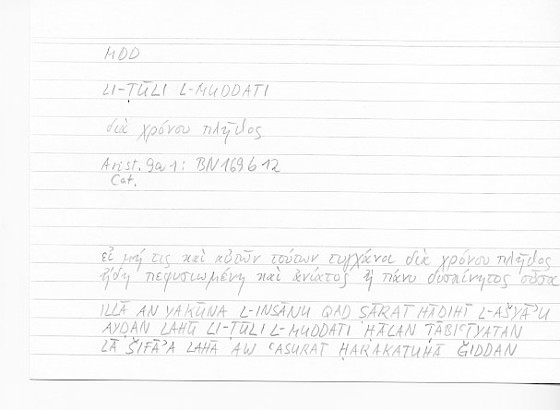 MDD
LI-ṬŪLI L-MUDDATI
διὰ χρόνου πλῆθος
Arist. 9a1: BN169b12
Cat.
εἰ μή τις καὶ αὐτῶν τούτων τυγχάνοι διὰ χρόνου πλῆθος
ἤδη πεφυσιωμένη καὶ ἀνίατος ἢ πάνυ δυσκίνητος οὖσα
ILLĀ AN YAKŪNA L-INSĀNU QAD ṢĀRAT HĀḎIHĪ L-AŠYĀʾU
AYḌAN LAHŪ LI-ṬŪLI L-MUDDATI ḤĀLAN ṬABĪʿĪYATAN
LĀ ŠIFĀʾA LAHĀ AW ʿASURAT ḤARAKATUHĀ ǦIDDAN